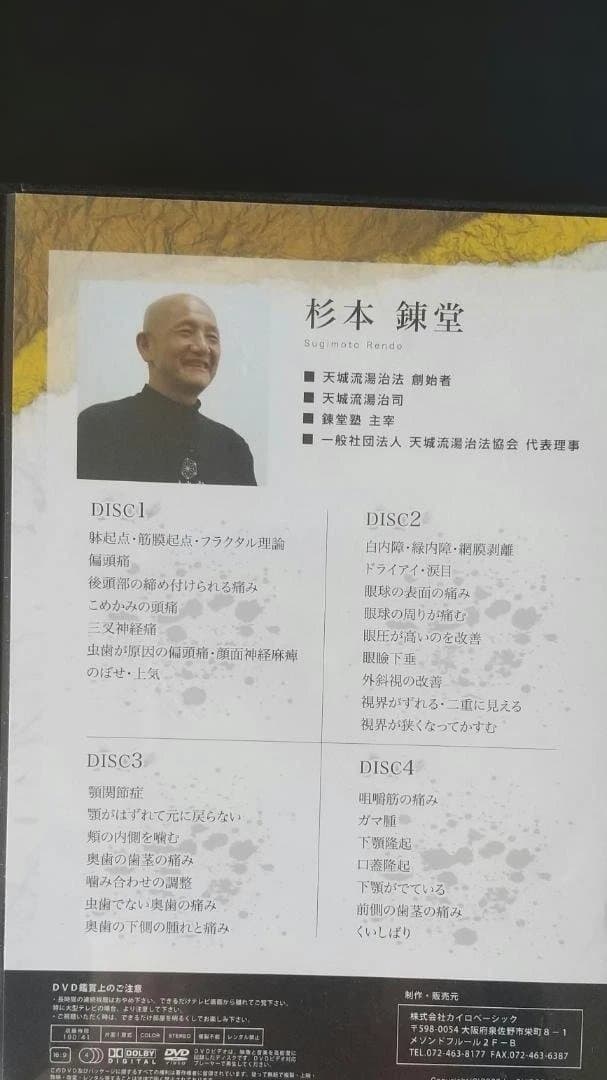 杉本 錬堂
Sugimoto Rendo
■ 天城流湯治法 創始者
■ 天城流湯治司
■ 錬堂塾 主宰
■ 一般社団法人 天城流湯治法協会 代表理事
DISC1
躰起点・筋膜起点・フラクタル理論
偏頭痛
後頭部の締め付けられる痛み
こめかみの頭痛
三叉神経痛
虫歯が原因の偏頭痛・顔面神経麻痺
のぼせ・上気
DISC2
白内障・緑内障・網膜剥離
ドライアイ・涙目
眼球の表面の痛み
眼球の周りが痛む
眼圧が高いのを改善
眼瞼下垂
外斜視の改善
視界がずれる・二重に見える
視界が狭くなってかすむ
DISC3
顎関節症
顎がはずれて元に戻らない
頬の内側を噛む
奥歯の歯茎の痛み
噛み合わせの調整
虫歯でない奥歯の痛み
奥歯の下側の腫れと痛み
DISC4
咀嚼筋の痛み
ガマ腫
下顎隆起
口蓋隆起
下顎がでている
前側の歯茎の痛み
くいしばり
DVD鑑賞上のご注意
・長時間の連続視聴はおやめ下さい。できるだけテレビ画面から離れてご覧下さい。
特に大型テレビの場合、より注意して下さい。
・ご視聴いただく時は、できるだけ部屋を明るくしてお楽しみ下さい。
収録時間
190:41
片面1層式
COLOR
STEREO
複製不能
レンタル禁止
16:9
4
DOLBY
DIGITAL
DVD
VIDEO
DVDビデオは、映像と音声を高密度に
記録したディスクです。DVDビデオ対応
プレーヤーで再生してください。
制作・販売元
株式会社カイロベーシック
〒598-0054 大阪府泉佐野市栄町8−1
メゾンドフルール2F−B
TEL.072-463-8177 FAX.072-463-6387